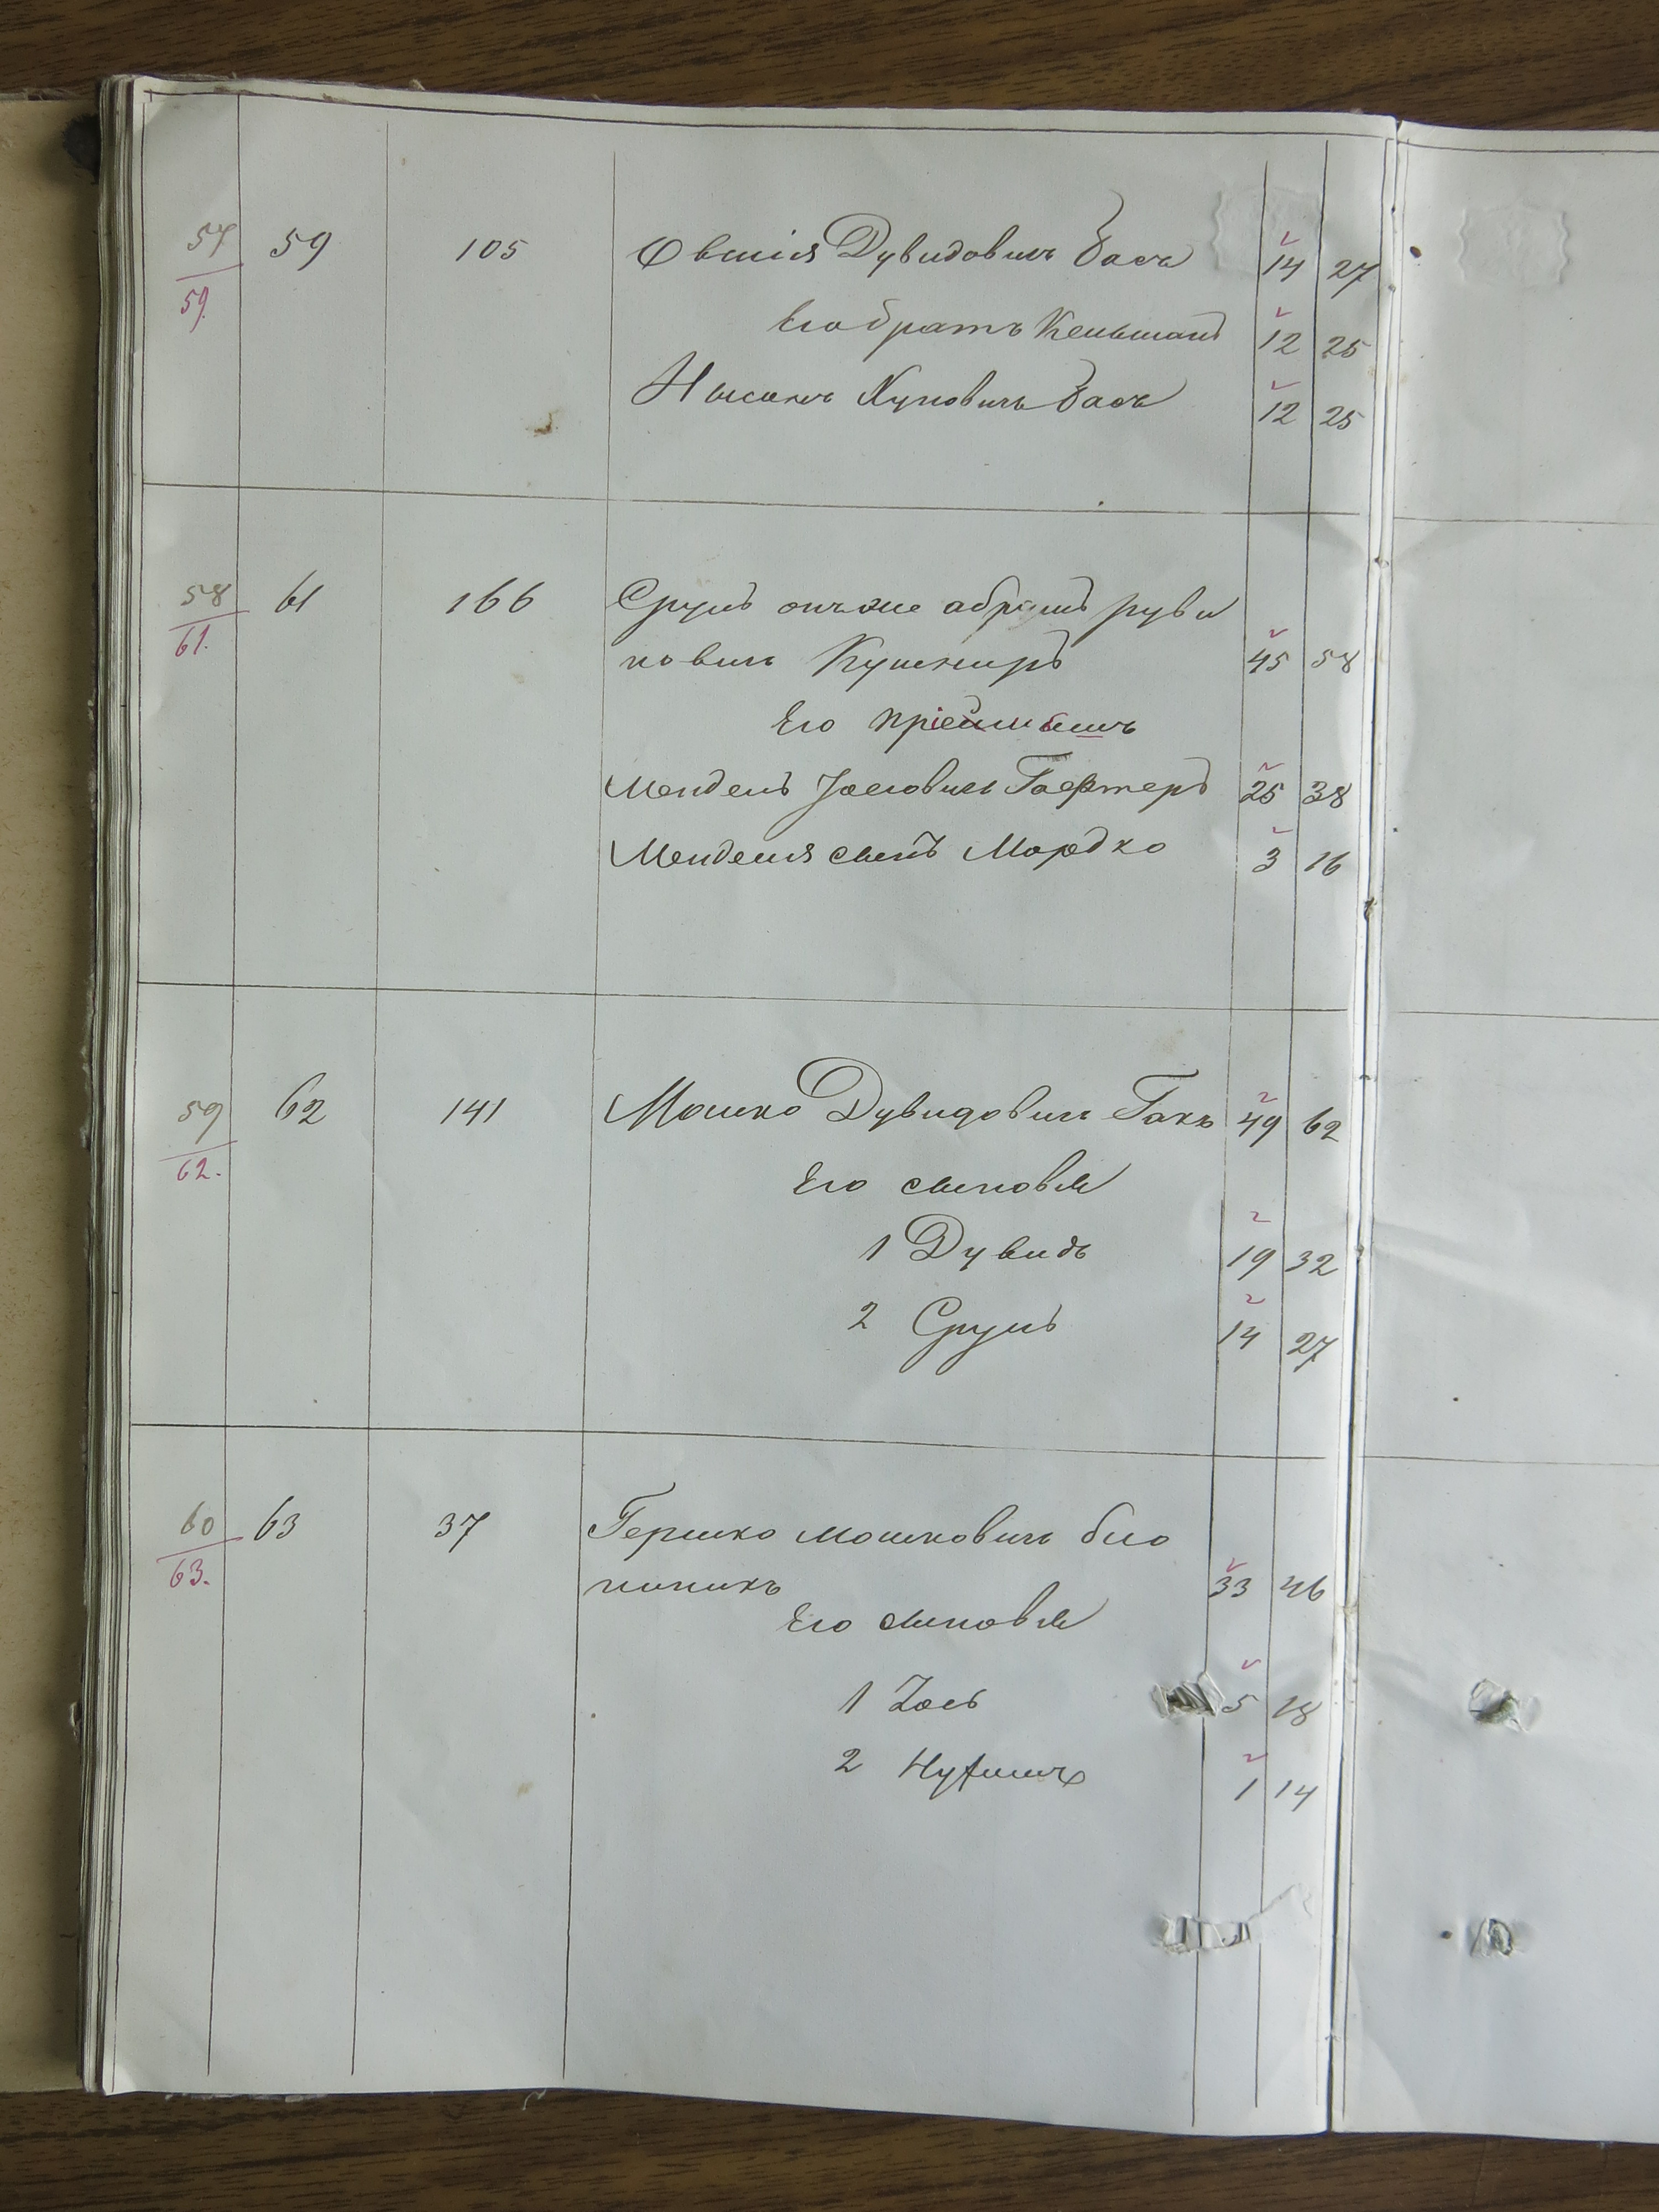 57 59 105 Овшія Дувидовичъ Басъ 14 27
59.
Его братъ Кельманъ 12 25
Нысонъ Хуновичъ Басъ 12 25
58 61 166 Сруль онъ же абрамъ руви
61.
новичъ Кушниръ 45 58
Его пріемышъ
Мендель Іосіовичъ Гафтеръ 25 38
Менделя сынъ Мордко 3 16
59 62 141 Мошко Дувидовичъ Гакъ 49 62
62.
Его сыновья
1 Дувидъ 19 32
2 Сруль 14 27
60 63 37 Гершко мошковичъ
63.
33 46
Его сыновья
1 Іось 5 18
2 1 14